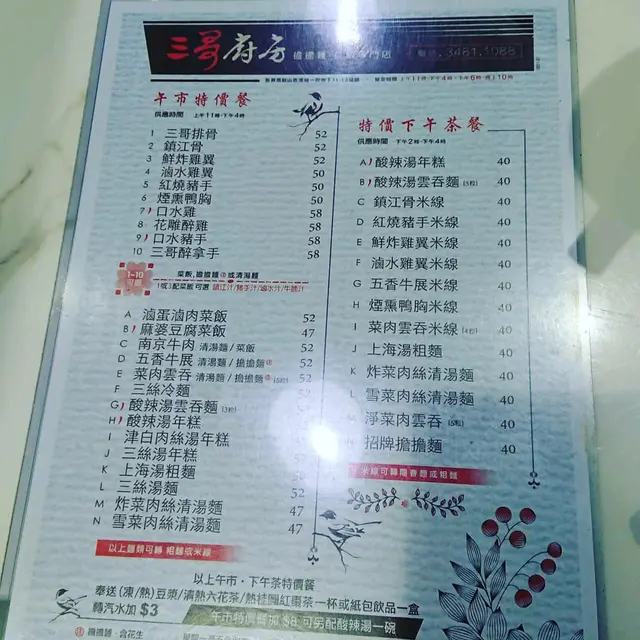 三哥廚房
3481.1088
午市特價餐
供應時間 上午11時-下午4時
1 三哥排骨 52
2 鎮江骨 52
3 鮮炸雞翼 52
4 滷水雞翼 50
5 紅燒豬手 50
6 煙熏鴨胸 50
7 口水雞 58
8 花雕醉雞 58
9 口水豬手 58
10 三哥醉拿手 58
1-10
菜飯,擔擔麵 或清湯麵
A 滷蛋滷肉菜飯 52
B 麻婆豆腐菜飯 47
C 南京牛肉 清湯麵/菜飯 52
D 五香牛展 清湯麵/擔擔麵 52
E 菜肉雲吞 清湯麵/擔擔麵 (5粒) 52
F 三絲冷麵 52
G 酸辣湯雲吞麵 (3粒) 52
H 酸辣湯年糕 52
I 津白肉絲湯年糕 52
J 三絲湯年糕 52
K 上海湯粗麵 52
L 三絲湯麵 52
M 炸菜肉絲清湯麵 47
N 雪菜肉絲清湯麵 47
以上麵類可轉 粗麵或米線
特價下午茶餐
供應時間 下午2時-下午4時
A 酸辣湯年糕 40
B 酸辣湯雲吞麵 (5粒) 40
C 鎮江骨米線 40
D 紅燒豬手米線 40
E 鮮炸雞翼米線 40
F 滷水雞翼米線 40
G 五香牛展米線 40
H 煙熏鴨胸米線 40
I 菜肉雲吞米線 (4粒) 40
J 上海湯粗麵 40
K 炸菜肉絲清湯麵 40
L 雪菜肉絲清湯麵 40
M 淨菜肉雲吞 (5粒) 40
招牌擔擔麵 40
米線可轉陽春麵或粗麵
以上午市・下午茶特價餐
奉送(凍/熱)豆漿/清熱六花茶/熱桂圓紅棗茶一杯或紙包飲品一盒
轉汽水加 $3
午市特價餐加 $8 可另配酸辣湯一碗
擔擔麵-含花生